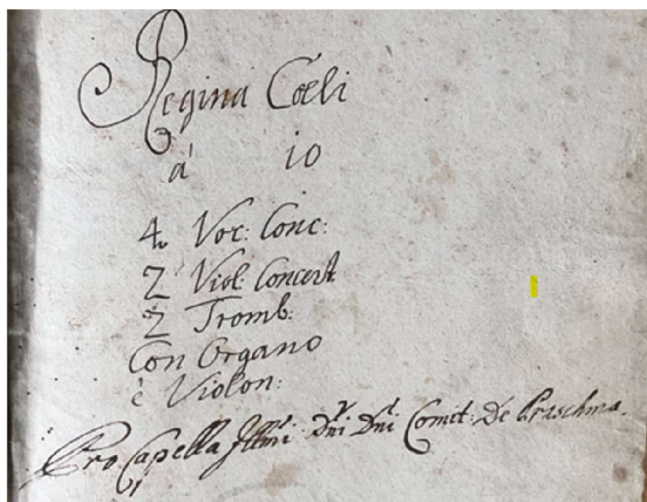 Regina Cœli
à 10
4. Voc: Conc:
2 Viol: Concert
2 Tromb:
Con Organo
è Violon:
Pro Capella Illmi Dni Dni Comit: De Praschma.